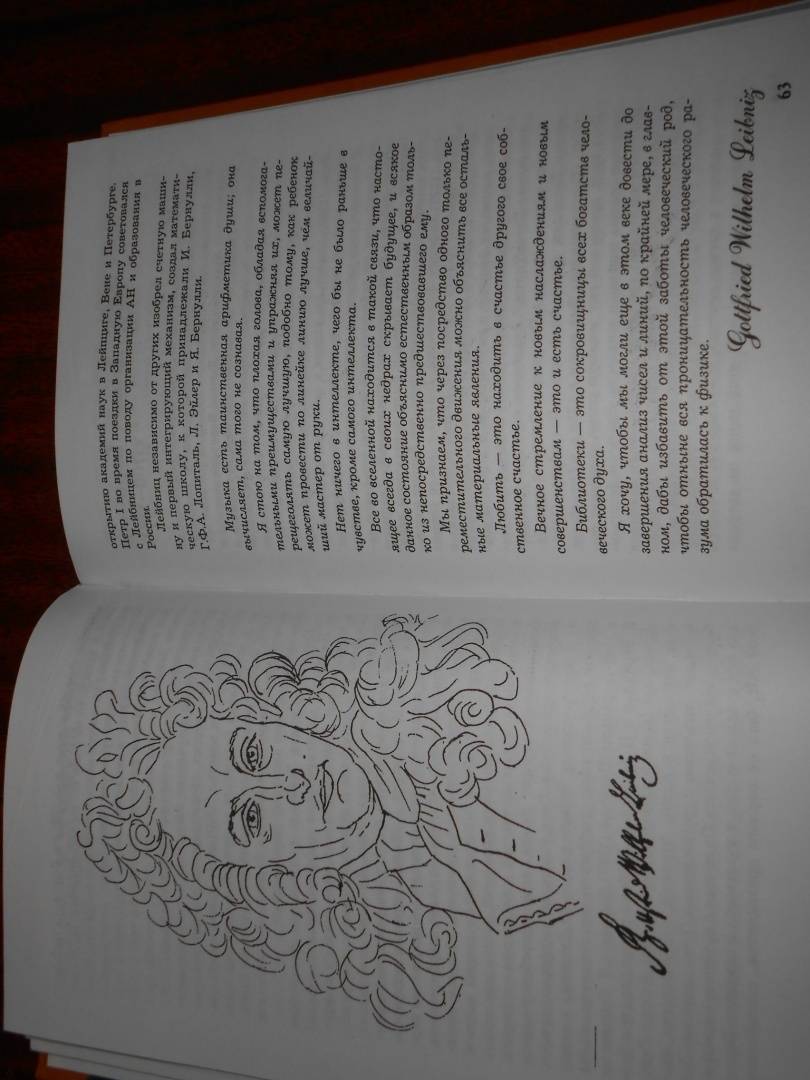 открытию академий наук в Лейпциге, Вене и Петербурге.
Петр I во время поездки в Западную Европу советовался
с Лейбницем по поводу организации АН и образования в
России.
Лейбниц независимо от других изобрел счетную маши-
ну и первый интегрирующий механизм, создал математи-
ческую школу, к которой принадлежали И. Бернулли,
Г.Ф.А. Лопиталь, Л. Эйлер и Я. Бернулли.
Музыка есть таинственная арифметика души; она
вычисляет, сама того не сознавая.
Я стою на том, что плохая голова, обладая вспомога-
тельными преимуществами и упражняя их, может пе-
рещеголять самую лучшую, подобно тому, как ребенок
может провести по линейке линию лучше, чем величай-
ший мастер от руки.
Нет ничего в интеллекте, чего бы не было раньше в
чувстве, кроме самого интеллекта.
Все во вселенной находится в такой связи, что насто-
ящее всегда в своих недрах скрывает будущее, и всякое
данное состояние объяснимо естественным образом толь-
ко из непосредственно предшествовавшего ему.
Мы признаем, что через посредство одного только пе-
реместительного движения можно объяснить все осталь-
ные материальные явления.
Любить — это находить в счастье другого свое соб-
ственное счастье.
Вечное стремление к новым наслаждениям и новым
совершенствам — это и есть счастье.
Библиотеки — это сокровищницы всех богатств чело-
веческого духа.
Я хочу, чтобы мы могли еще в этом веке довести до
завершения анализ чисел и линий, по крайней мере, в глав-
ном, дабы избавить от этой заботы человеческий род,
чтобы отныне вся проницательность человеческого ра-
зума обратилась к физике.
Gottfried Wilhelm Leibniz
63